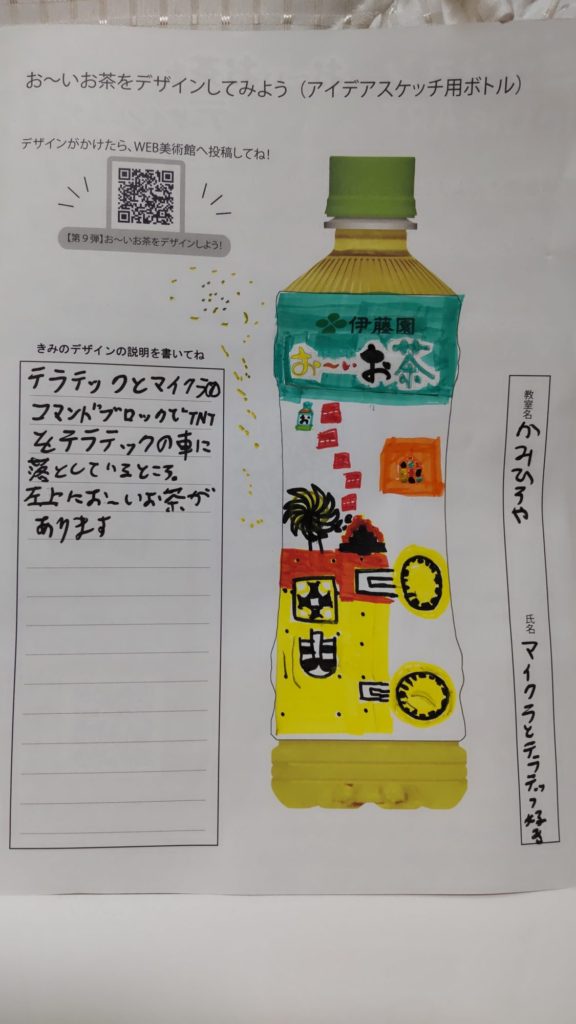 お〜いお茶をデザインしてみよう（アイデアスケッチ用ボトル）
デザインがかけたら、WEB美術館へ投稿してね！
【第９弾】お〜いお茶をデザインしよう！
伊藤園
お〜いお茶
お
きみのデザインの説明を書いてね
テラテックとマイクラの
コマンドブロックでTNT
をテラテックの車に
落としているところ。
左上にお〜いお茶が
あります
教室名
かみひろや
氏名
マイクラとテラテック好き